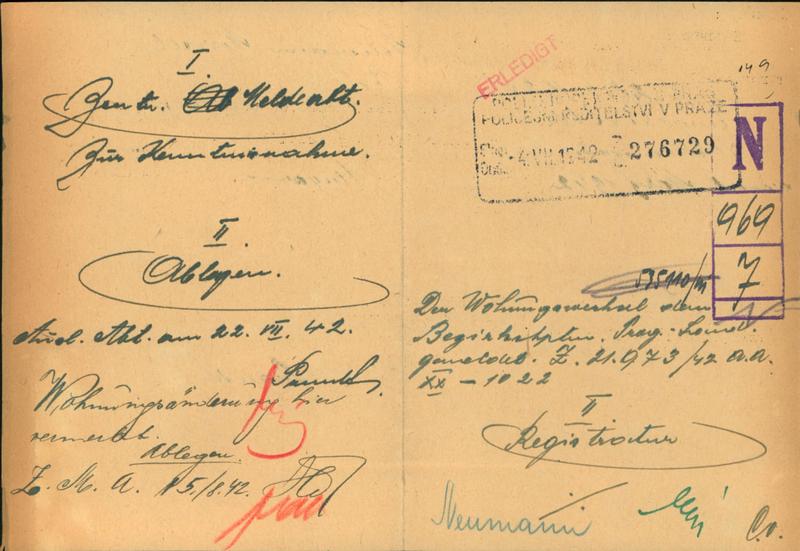 I.
Zentr. Meldeabt.
Zur Kenntnisnahme.
II
Ablegen.
Ausl. Abt. am 22. VII. 42.
Wohnungsänderung hier
vermerkt.
Ablegen.
Z. M. A. 15/8.42.
ERLEDIGT
149
POLICEJNÍ ŘEDITELSTVÍ V PRAZE
-4.VII.1942 276729
N
969
7
Den Wohnungswechsel dem
Bezirkshptm. Prag-Land
gemeldet. Z. 21.973/42 A.A.
XX - 1022
II
Registratur
Neumann